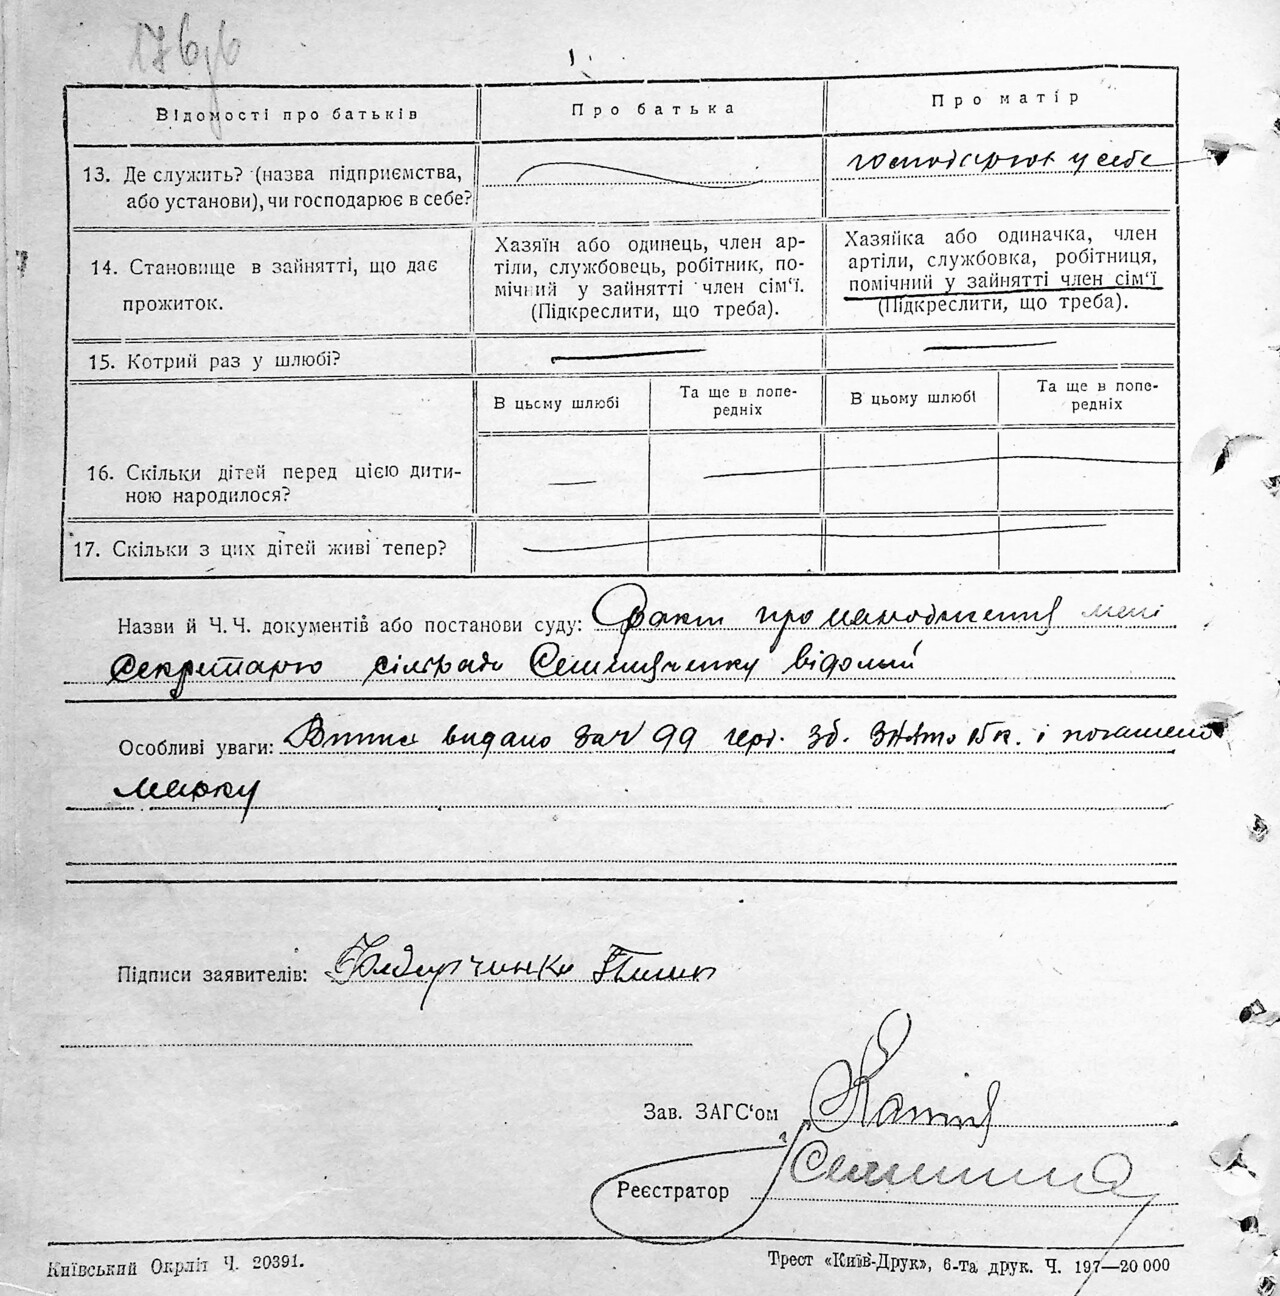 176
Відомості про батьків
Про батька
Про матір
13. Де служить? (назва підприємства,
або установи), чи господарює в себе?
господарює у себе
14. Становище в зайнятті, що дає
прожиток.
Хазяїн або одинець, член ар-
тіли, службовець, робітник, по-
мічний у зайнятті член сім'ї.
(Підкреслити, що треба).
Хазяйка або одиначка, член
артіли, службовка, робітниця,
помічний у зайнятті член сім'ї
(Підкреслити, що треба).
15. Котрий раз у шлюбі?
В цьому шлюбі
Та ще в попе-
редніх
В цьому шлюбі
Та ще в попе-
редніх
16. Скільки дітей перед цією дити-
ною народилося?
17. Скільки з цих дітей живі тепер?
Назви й Ч. Ч. документів або постанови суду: Факт про народження мені
Секретарю сільради відомий
Особливі уваги: видано за № 99 герб. зб. знято 15 к. і погашено
марку
Підписи заявителів:
Зав. ЗАГС'ом
Реєстратор
Київський Окрліт Ч. 20391.
Трест «Київ-Друк», 6-та друк. Ч. 197—20 000